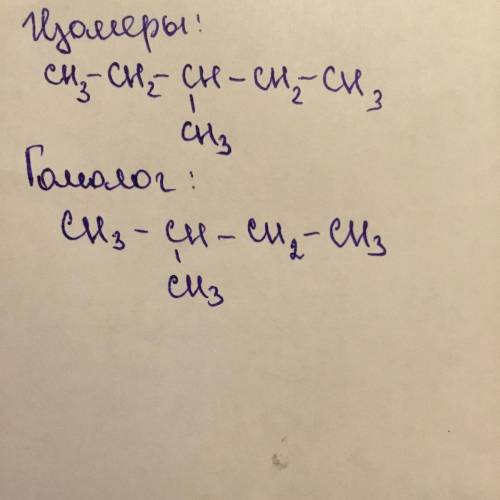 Изомеры:
CH3-CH2-CH-CH2-CH3
CH3
Гомолог:
CH3-CH-CH2-CH3
CH3